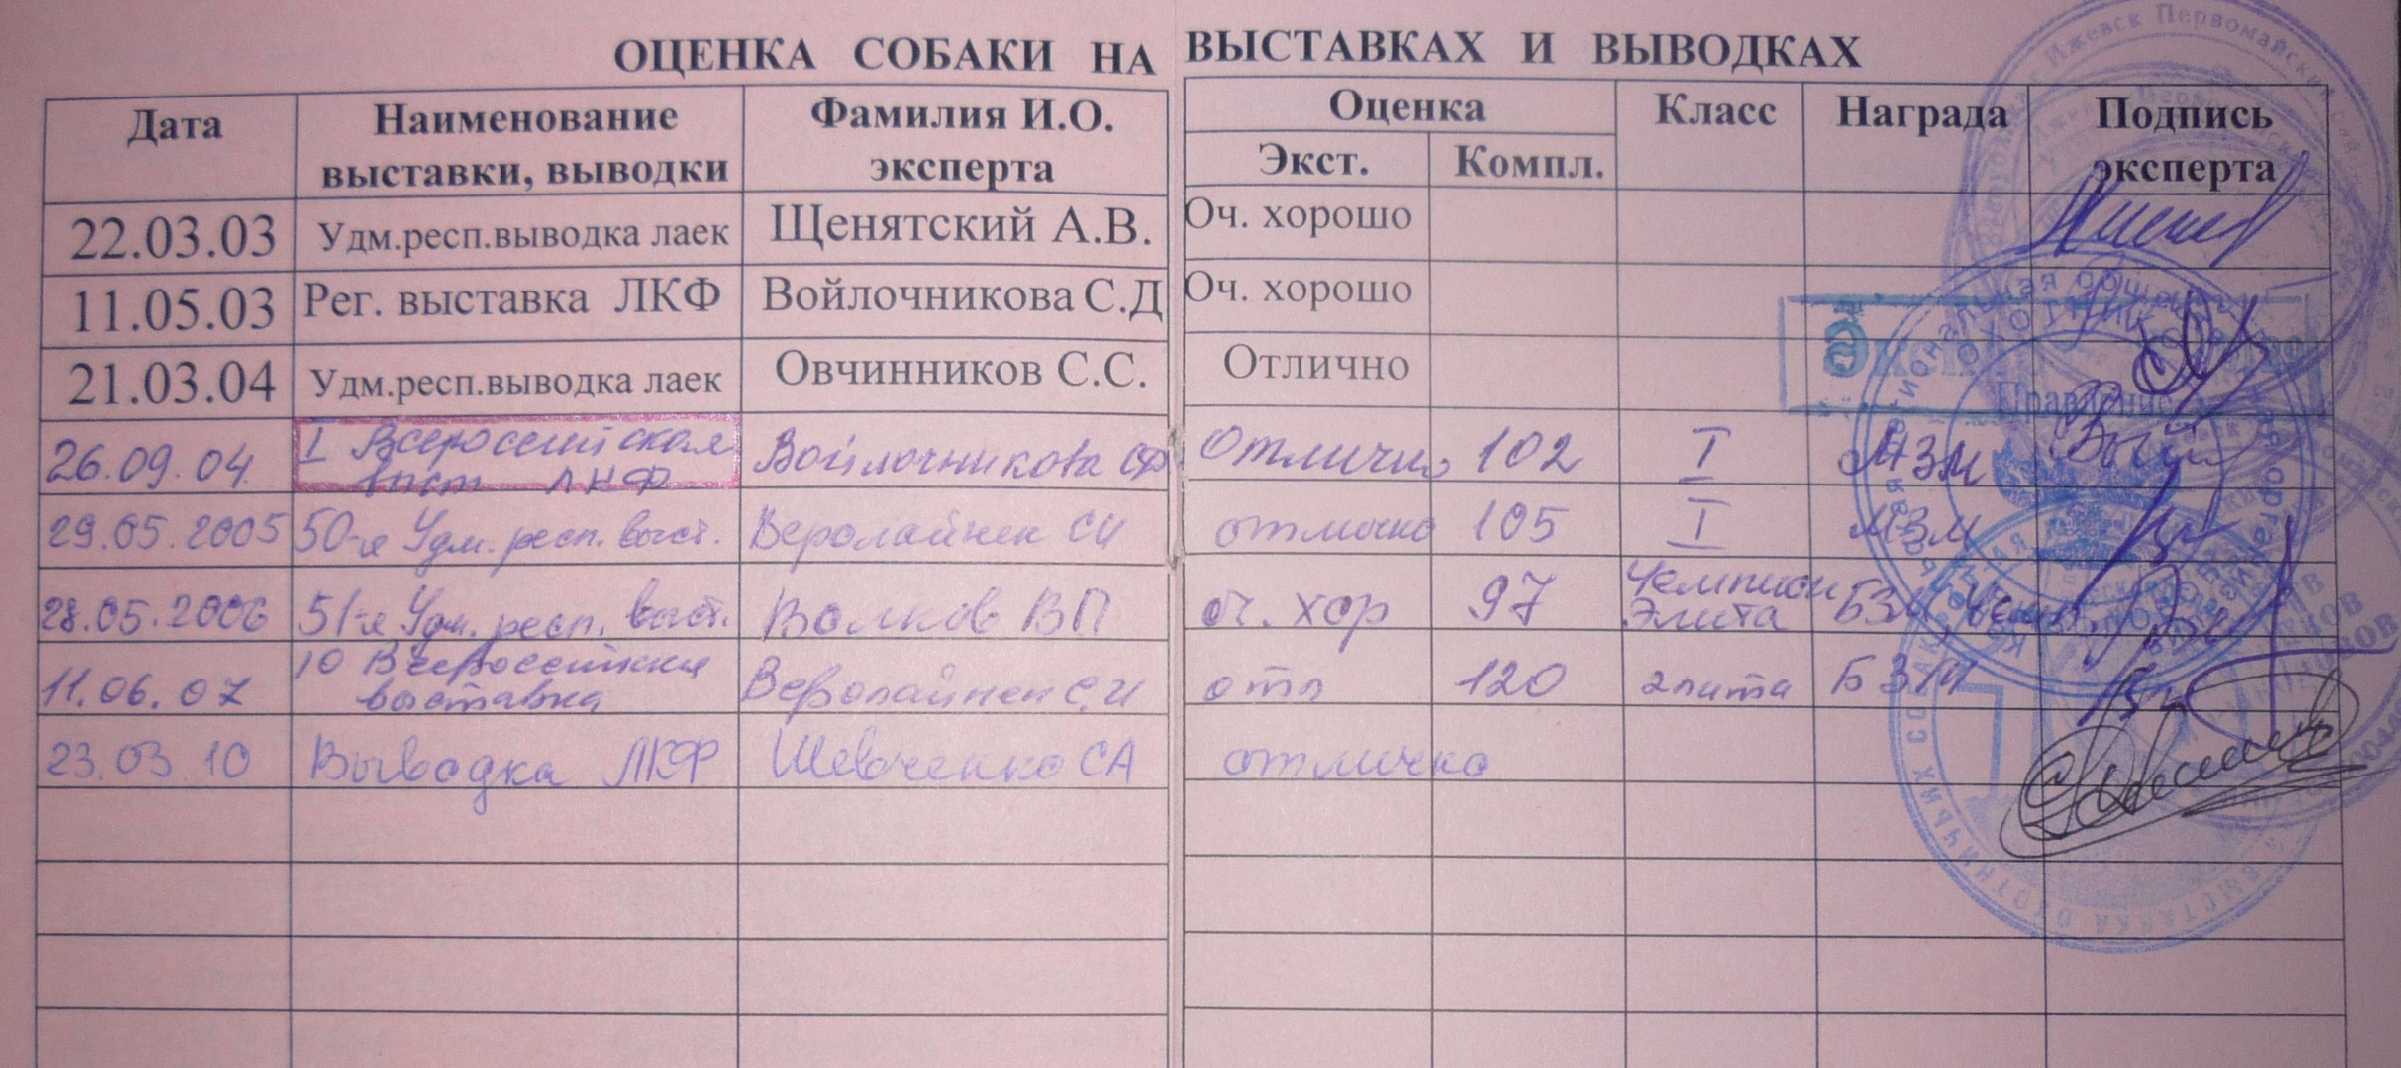 ОЦЕНКА СОБАКИ НА ВЫСТАВКАХ И ВЫВОДКАХ
Дата Наименование выставки, выводки Фамилия И.О. эксперта Оценка Экст. Компл. Класс Награда Подпись эксперта
22.03.03 Удм.респ.выводка лаек Щенятский А.В. Оч. хорошо
11.05.03 Рег. выставка ЛКФ Войлочникова С.Д Оч. хорошо
21.03.04 Удм.респ.выводка лаек Овчинников С.С. Отлично
26.09.04 I Всероссийская выст ЛКФ Войлочникова СД Отлично 102 I МЗМ
29.05.2005 50-я Удм. респ. выст. Веролайнен СИ отлично 105 I МЗМ
28.05.2006 51-я Удм. респ. выст. Волков ВП оч. хор 97 Чемпион Элита БЗМ
11.06.07 10 Всероссийская выставка Веролайнен С.И отл 120 элита БЗМ
23.03.10 Выводка ЛКФ Шевченко СА отлично
Ижевск Первомайский